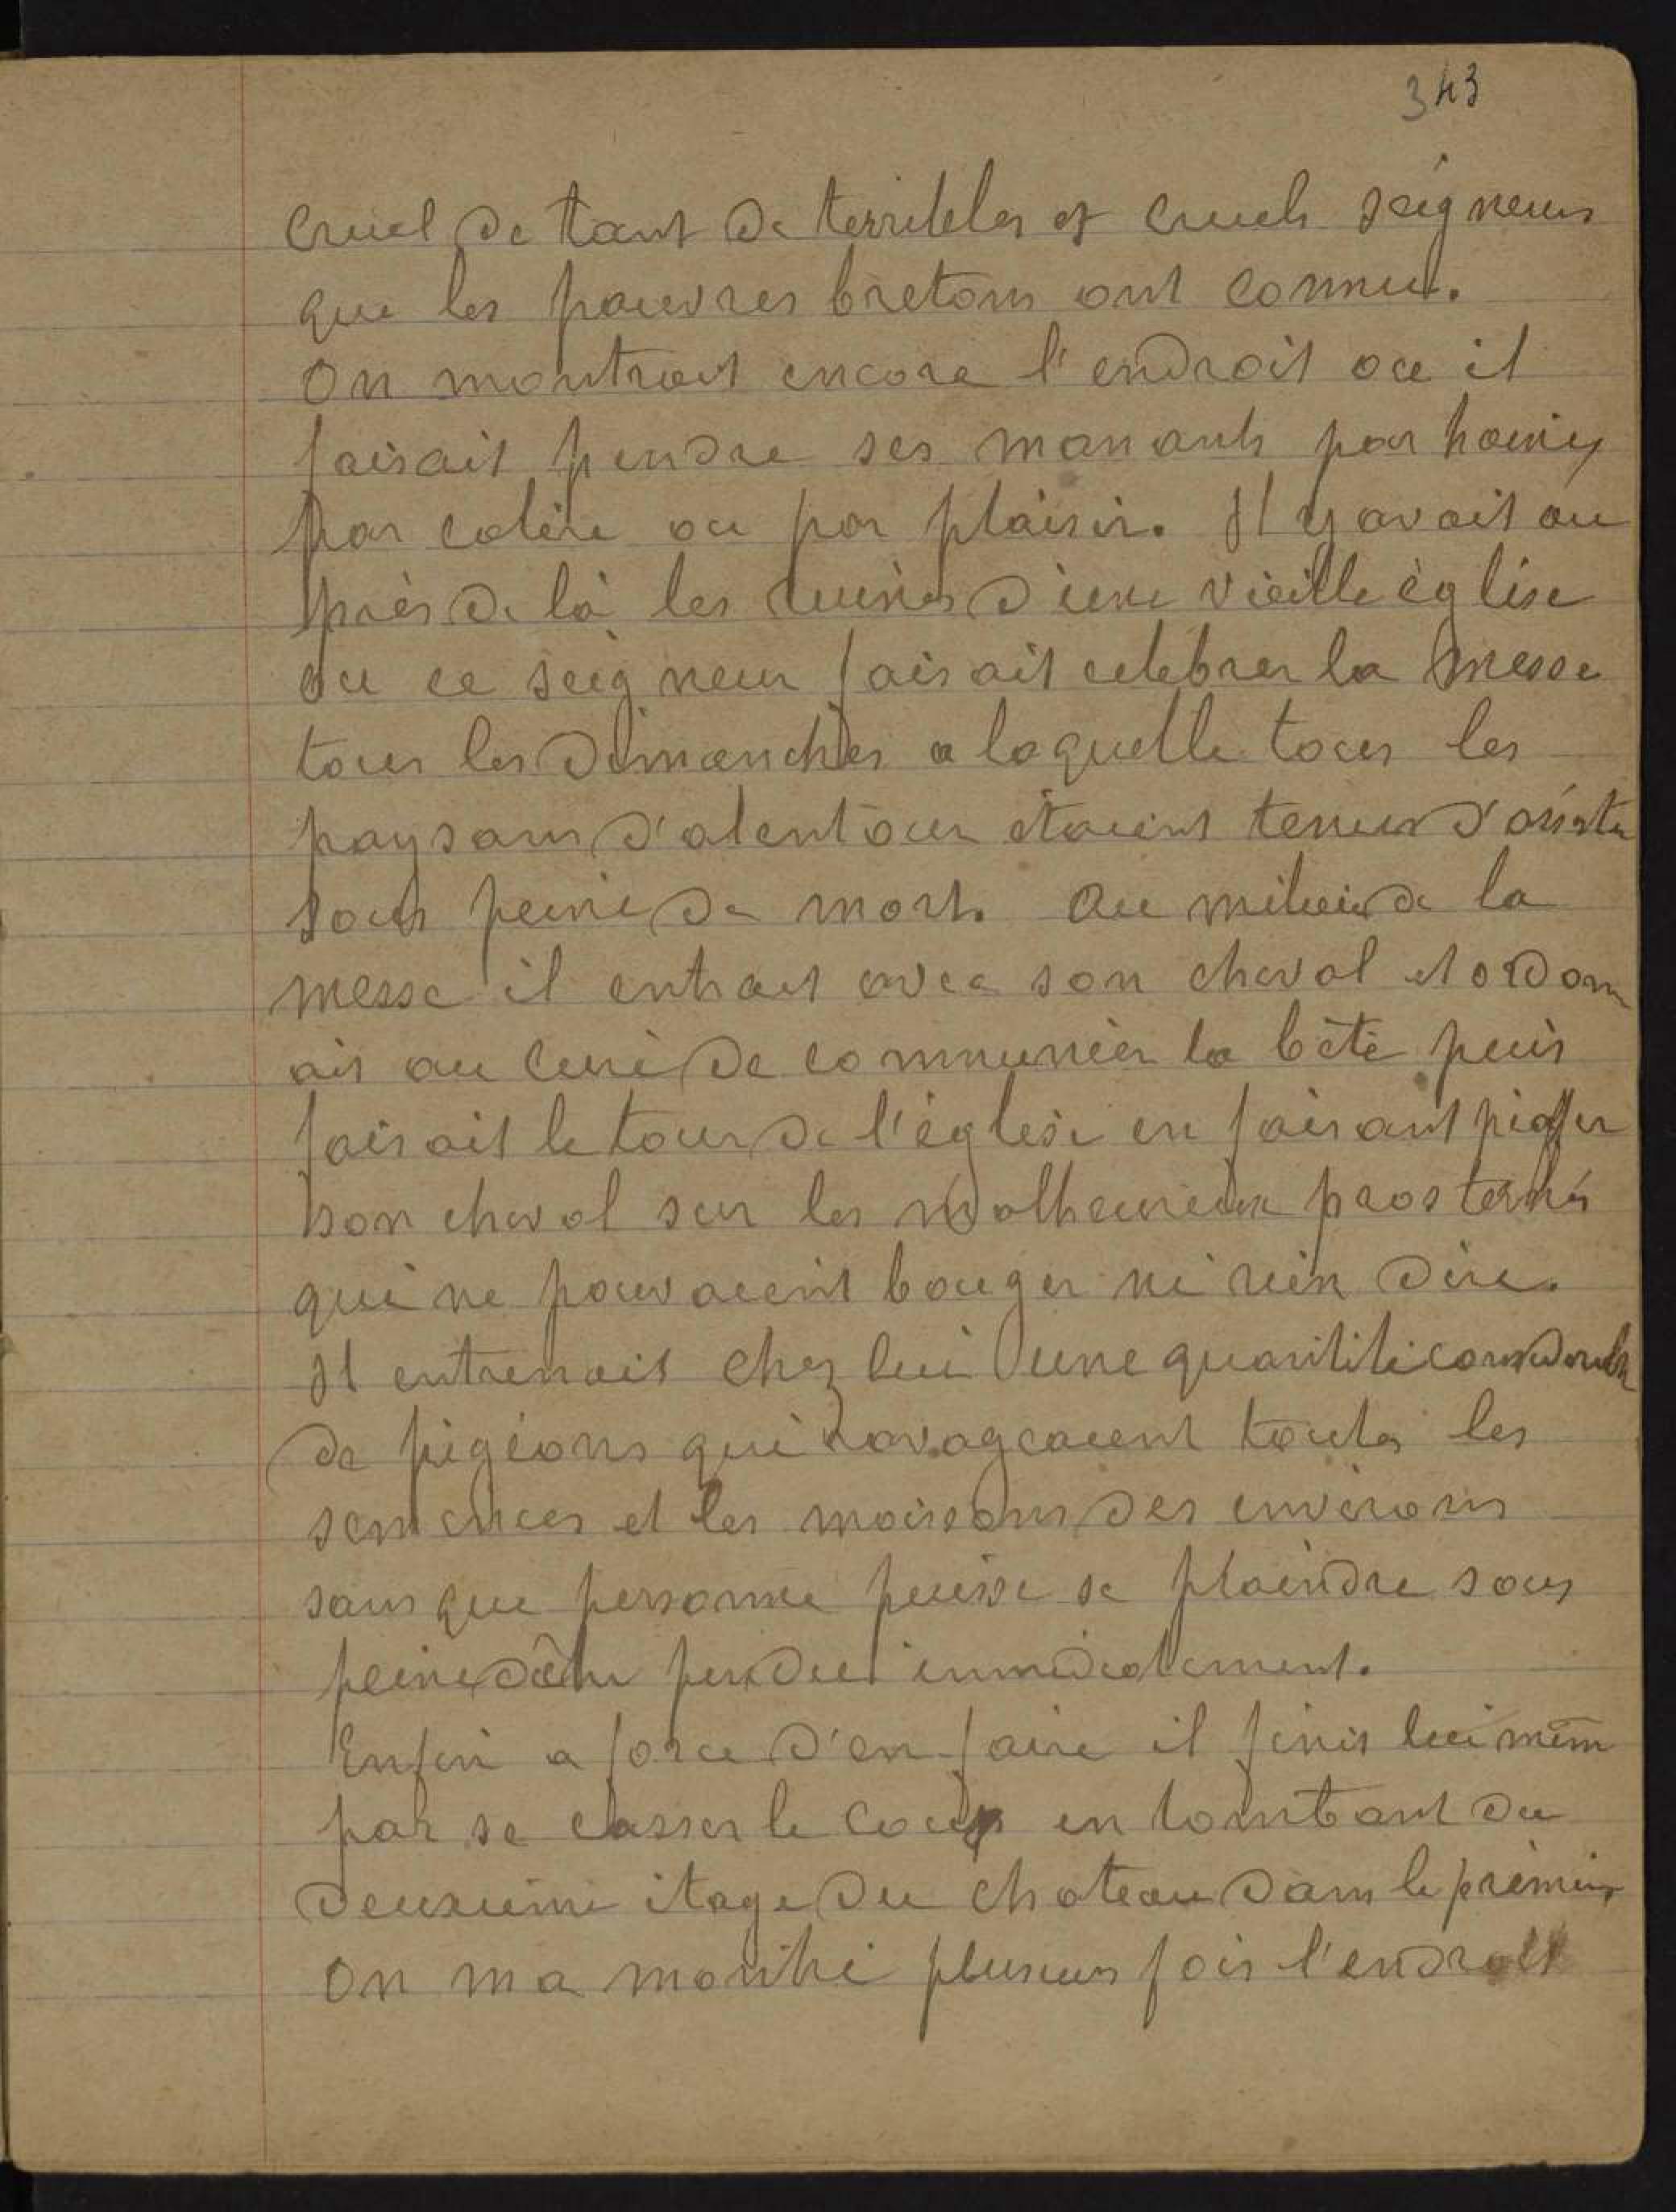 343
cruel de tant de terribles et cruels seigneurs
que les pauvres bretons ont connus.
On montrait encore l'endroit ou il
faisait pendre ses manants par haine,
par colère ou par plaisir. Il y avait au
près de là les ruines d'une vieille église
ou ce seigneur faisait celebrer la messe
tous les dimanches a laquelle tous les
paysans d'alentour étaient tenus d'assister
sous peine de mort. Au milieu de la
messe il entrait avec son cheval et ordonn
ait au curé de communier la bête puis
faisait le tour de l'église en faisant piaffer
son cheval sur les malheureux prosternés
qui ne pouvaient bouger ni rien dire.
Il entrenait chez lui une quantité considerable
de pigeons qui ravageaient toutes les
semences et les moissons des environs
sans que personne puisse se plaindre sous
peine d'être pendu immediatement.
Enfin a force d'en faire il finit lui même
par se casser le cou en tombant du
deuxième étage du chateau dans le premier
On ma montré plusieurs fois l'endroit